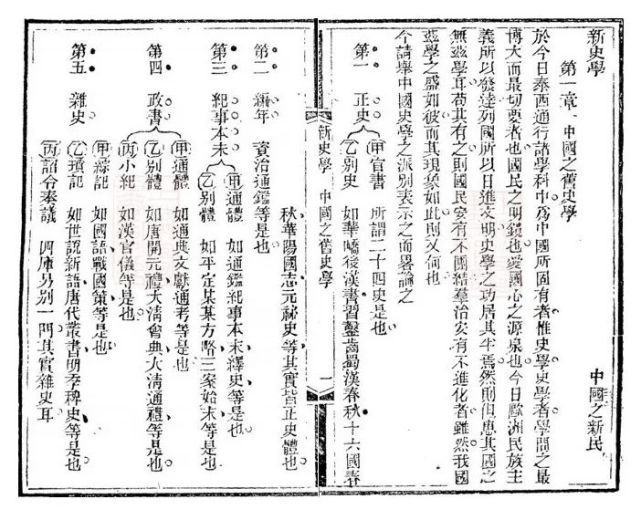 新史學
中國之新民
第一章　中國之舊史學
於今日泰西通行諸學科中爲中國所固有者惟史學史學者學問之最
博大而最切要者也國民之明鏡也愛國心之源泉也今日歐洲民族主
義所以發達列國所以日進文明史學之功居其半焉然則但患其國之
無茲學耳苟其有之則國民安有不團結羣治安有不進化者雖然我國
茲學之盛如彼而其現象如此則又何也
今請舉中國史學之派別表示之而畧論之
第一　正史
甲官書　所謂二十四史是也
乙別史　如華嶠後漢書習鑿齒蜀漢春秋十六國春
新史學　中國之舊史學
一
秋華陽國志元祕史等其實皆正史體也
第二　編年　資治通鑑等是也
第三　紀事本末
甲通體　如通鑑紀事本末繹史等是也
乙別體　如平定某某方略三案始末等是也
第四　政書
甲通體　如通典文獻通考等是也
乙別體　如唐開元禮大清會典大清通禮等是也
丙小紀　如漢官儀等是也
第五　雜史
甲綜記　如國語戰國策等是也
乙瑣記　如世說新語唐代叢書明季稗史等是也
丙詔令奏議　四庫另列一門其實雜史耳